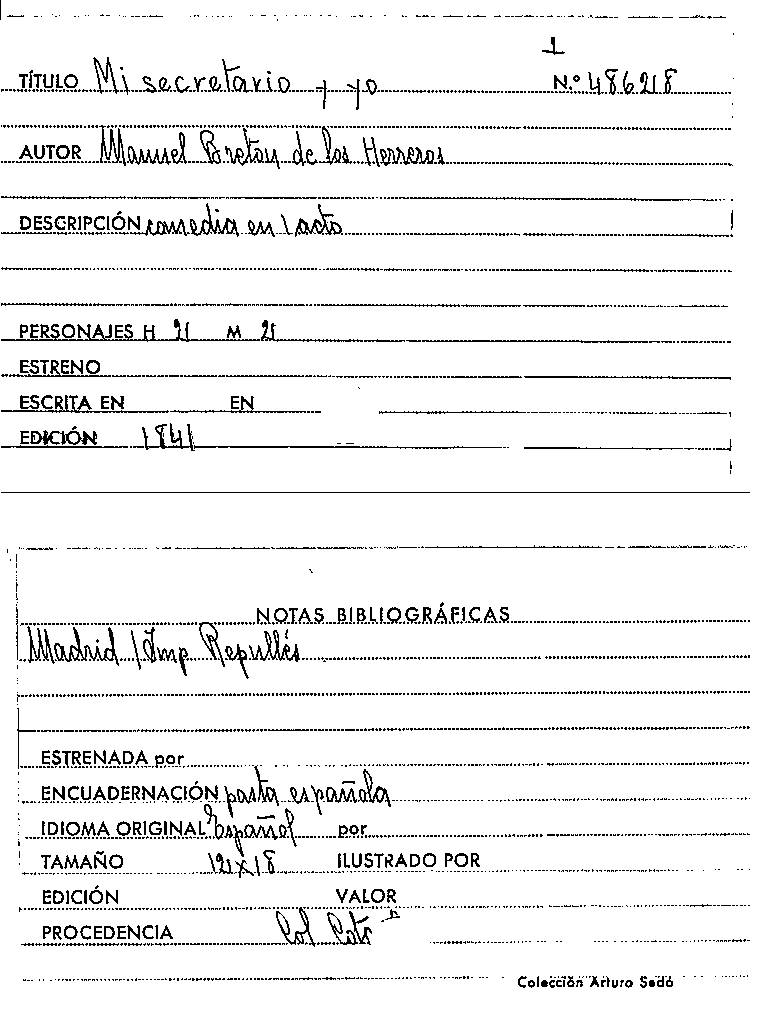 1
TÍTULO Mi secretario y yo N.º 48628
AUTOR Manuel Breton de los Herreros
DESCRIPCIÓN comedia en 1 acto
PERSONAJES H 2 M 2
ESTRENO
ESCRITA EN EN
EDICIÓN 1841
NOTAS BIBLIOGRÁFICAS
Madrid / Imp Repullés
ESTRENADA por
ENCUADERNACIÓN pasta española
IDIOMA ORIGINAL Español por
TAMAÑO 12x18 ILUSTRADO POR
EDICIÓN VALOR
PROCEDENCIA Col Cot
Colección Arturo Sedó